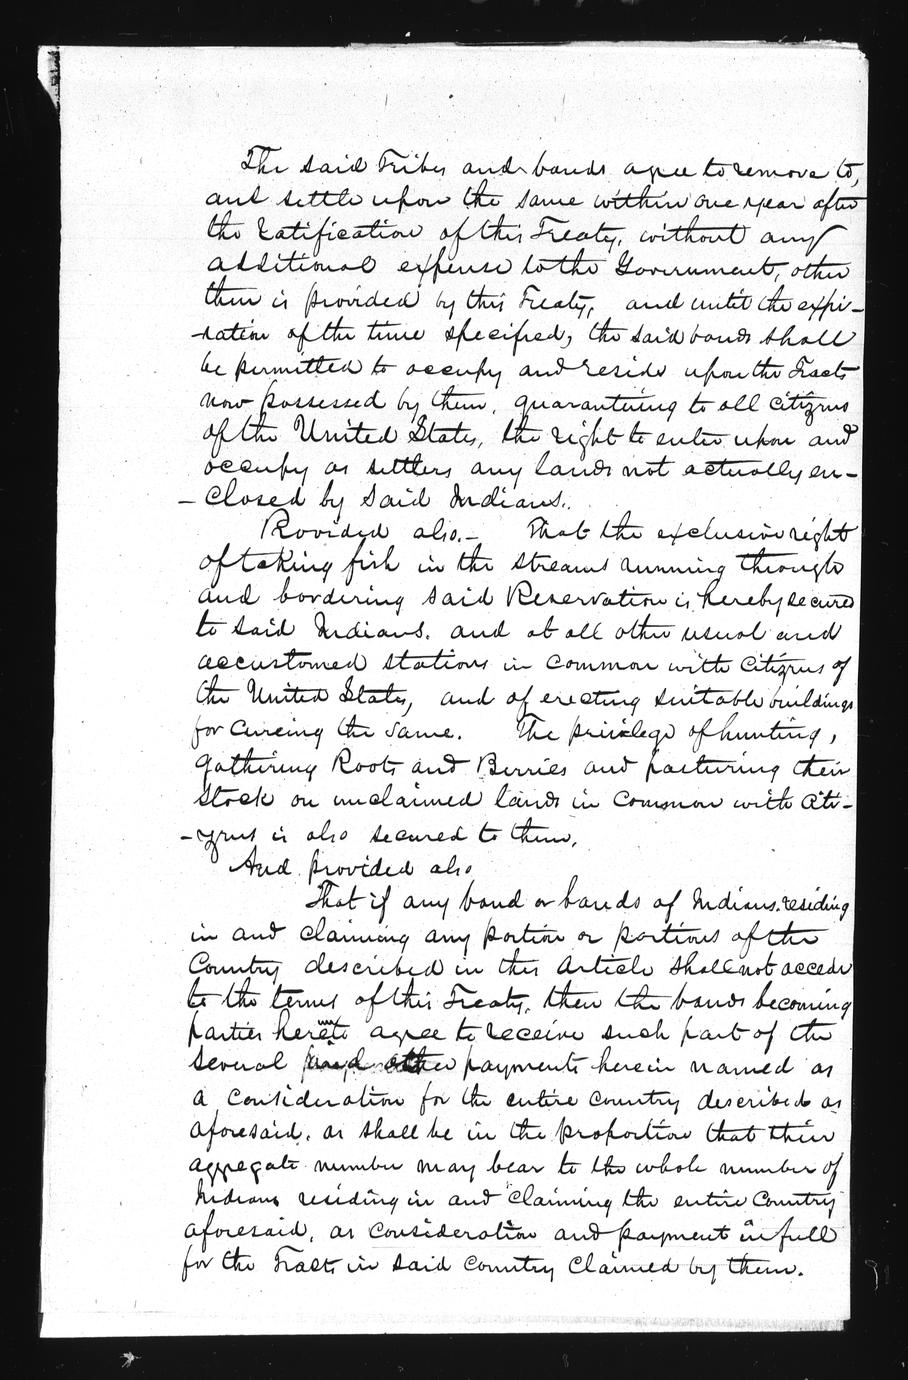 The said Tribes and bands agree to remove to,
and settle upon the same within one year after
the ratification of this Treaty, without any
additional expense to the Government, other
than is provided by this Treaty, and until the expi-
-ration of the time specified, the said bands shall
be permitted to occupy and reside upon the Tracts
now possessed by them, guaranteeing to all citizens
of the United States, the right to enter upon and
occupy as settlers any lands not actually en-
-closed by said Indians.
Provided also.- That the exclusive right
of taking fish in the streams running through
and bordering said Reservation is hereby secured
to said Indians. and at all other usual and
accustomed stations in common with citizens of
the United States, and of erecting suitable buildings
for cureing the same. The privilege of hunting,
gathering Roots and Berries and pasturing their
stock on unclaimed lands in common with citi-
-zens is also secured to them.
And provided also
That if any band or bands of Indians. residing
in and claiming any portion or portions of the
Country described in this Article shall not accede
to the terms of this Treaty, then the bands becoming
parties hereunto agree to receive such part of the
several payments herein named as
a consideration for the entire country described as
aforesaid, as shall be in the proportion that their
aggregate number may bear to the whole number of
Indians residing in and claiming the entire Country
aforesaid, as consideration and payment in full
for the Tracts in said country claimed by them.